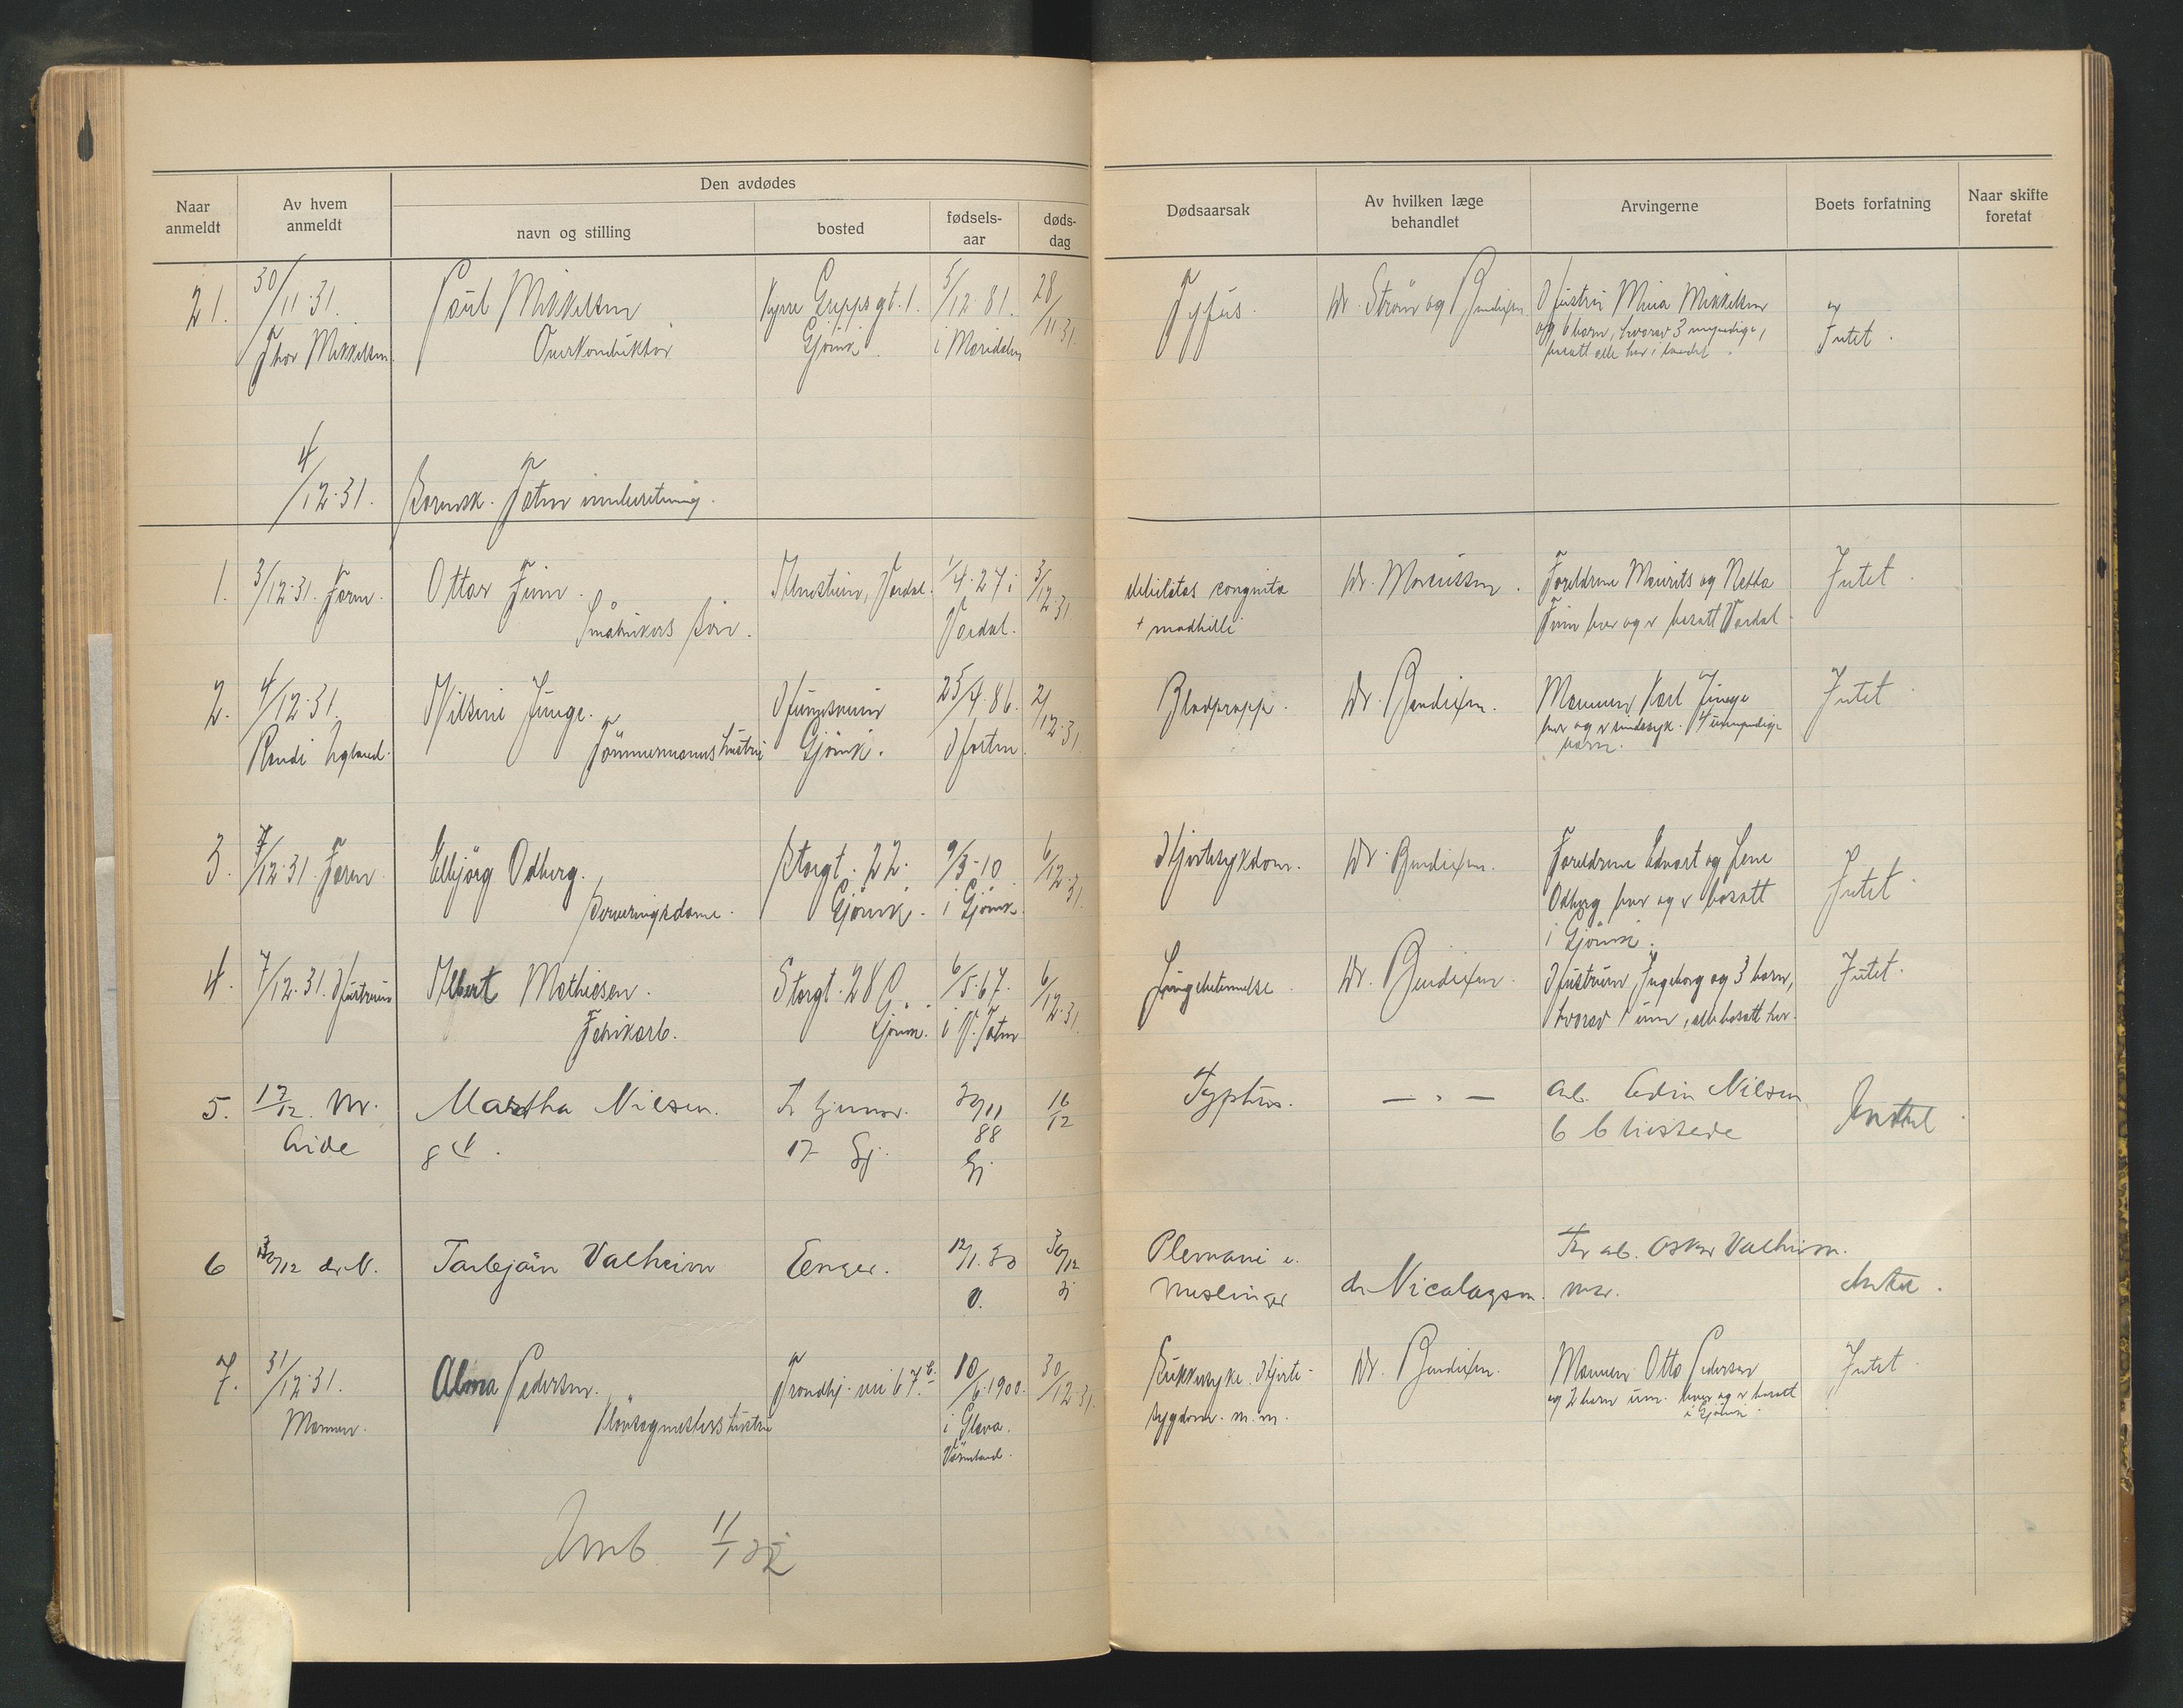 Naar anmeldt
Av hvem anmeldt
Den avdødes
navn og stilling
bosted
fødsels-aar
døds-dag
Dødsaarsak
Av hvilken læge behandlet
Arvingerne
Boets forfatning
Naar skifte foretat
21. 30/11.31. Paul Mikkelsen Kyrre Greppsgt. 1. 5/12.81. 28/11.31. Tyfus. Dr. Strøm og Bendixen Hustru Mina Mikkelsen
Thor Mikkelsen. Overkonduktør Gjøvik. i Maridalen og 6 barn, hvorav 3 myndige, Intet.
bosatt alle her i landet.
4/12.31. Sorensk. Toten innberetning.
1. 3/12.31. Faren. Ottar Finn. Vardal. 1/4.27 i 3/12.31 debilitas congenita Dr. Foreldrene Maurits og Netta Intet.
Småbrukers sønn. Vardal. + Finn her og er bosatt Vardal.
2. 4/12.31. Hilsine Junge. Gjøvik. 25/4.86. 2/12.31. Blodpropp. Dr. Bendixen. Mannen Karl Junge Intet.
Randi Tømmermanns hustru her og er sindssyk. 4 umyndige
barn.
3. 7/12.31. Faren. Eilbjørg Odberg. Storgt. 22. 9/3-10 6/12.31. Hjertesykdom. Dr. Bendixen. Foreldrene Edvart og Lene
Serveringsdame. Gjøvik. i Gjøvik. Odberg her og er bosatt Intet.
i Gjøvik.
4. 7/12.31. Hustruen Albert Mathiesen. Storgt. 28 6/5.67. 6/12.31. Lungebetennelse. Dr. Bendixen. Hustruen Ingeborg og 3 barn, Intet.
Fabrikarb. Gjøvik. i V. Toten hvorav 1 um., alle bosatt her.
5. 17/12. Martha Nilsen. 30/11 16/12 Typhus. — " — arb. Edin Nilsen Intet.
17 Gj. 88 6
Gj.
6 30/12 dr. N. Torbjørn Valheim Enger. 12/1.30 30/12 dr Nicolaysen. arb. Oskar Valheim. Intet.
meslinger
7. 31/12.31. Alma Pedersen. Trondhj.-vei 67 b. 10/6.1900. 30/12.31. Sukkersyke. Hjerte- Dr. Bendixen. Mannen Otto Pedersen Intet.
Mannen. hustru i Glava. sygdom. m.m. og 2 barn um. her og er bosatt
Värmland. i Gjøvik.
Innb 11/1 32